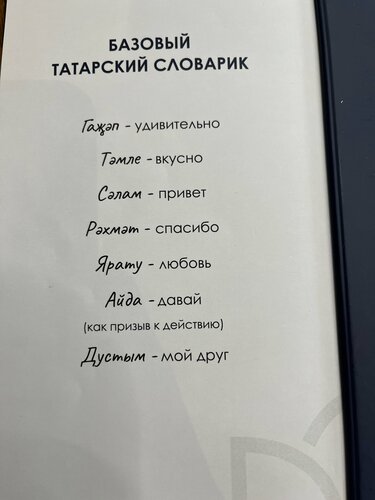 БАЗОВЫЙ
ТАТАРСКИЙ СЛОВАРИК
Гаҗәп - удивительно
Тәмле - вкусно
Сәлам - привет
Рәхмәт - спасибо
Ярату - любовь
Айда - давай
(как призыв к действию)
Дустым - мой друг